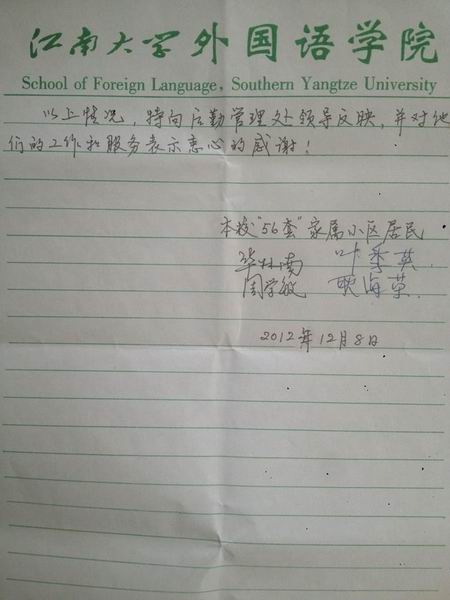 江南大学外国语学院
School of Foreign Language, Southern Yangtze University
以上情况，特向后勤管理处领导反映，并对他
们的工作和服务表示衷心的感谢！
本校“56套”家属小区居民
华林南 叶秀英
周学敏 耿海英
2012年12月8日